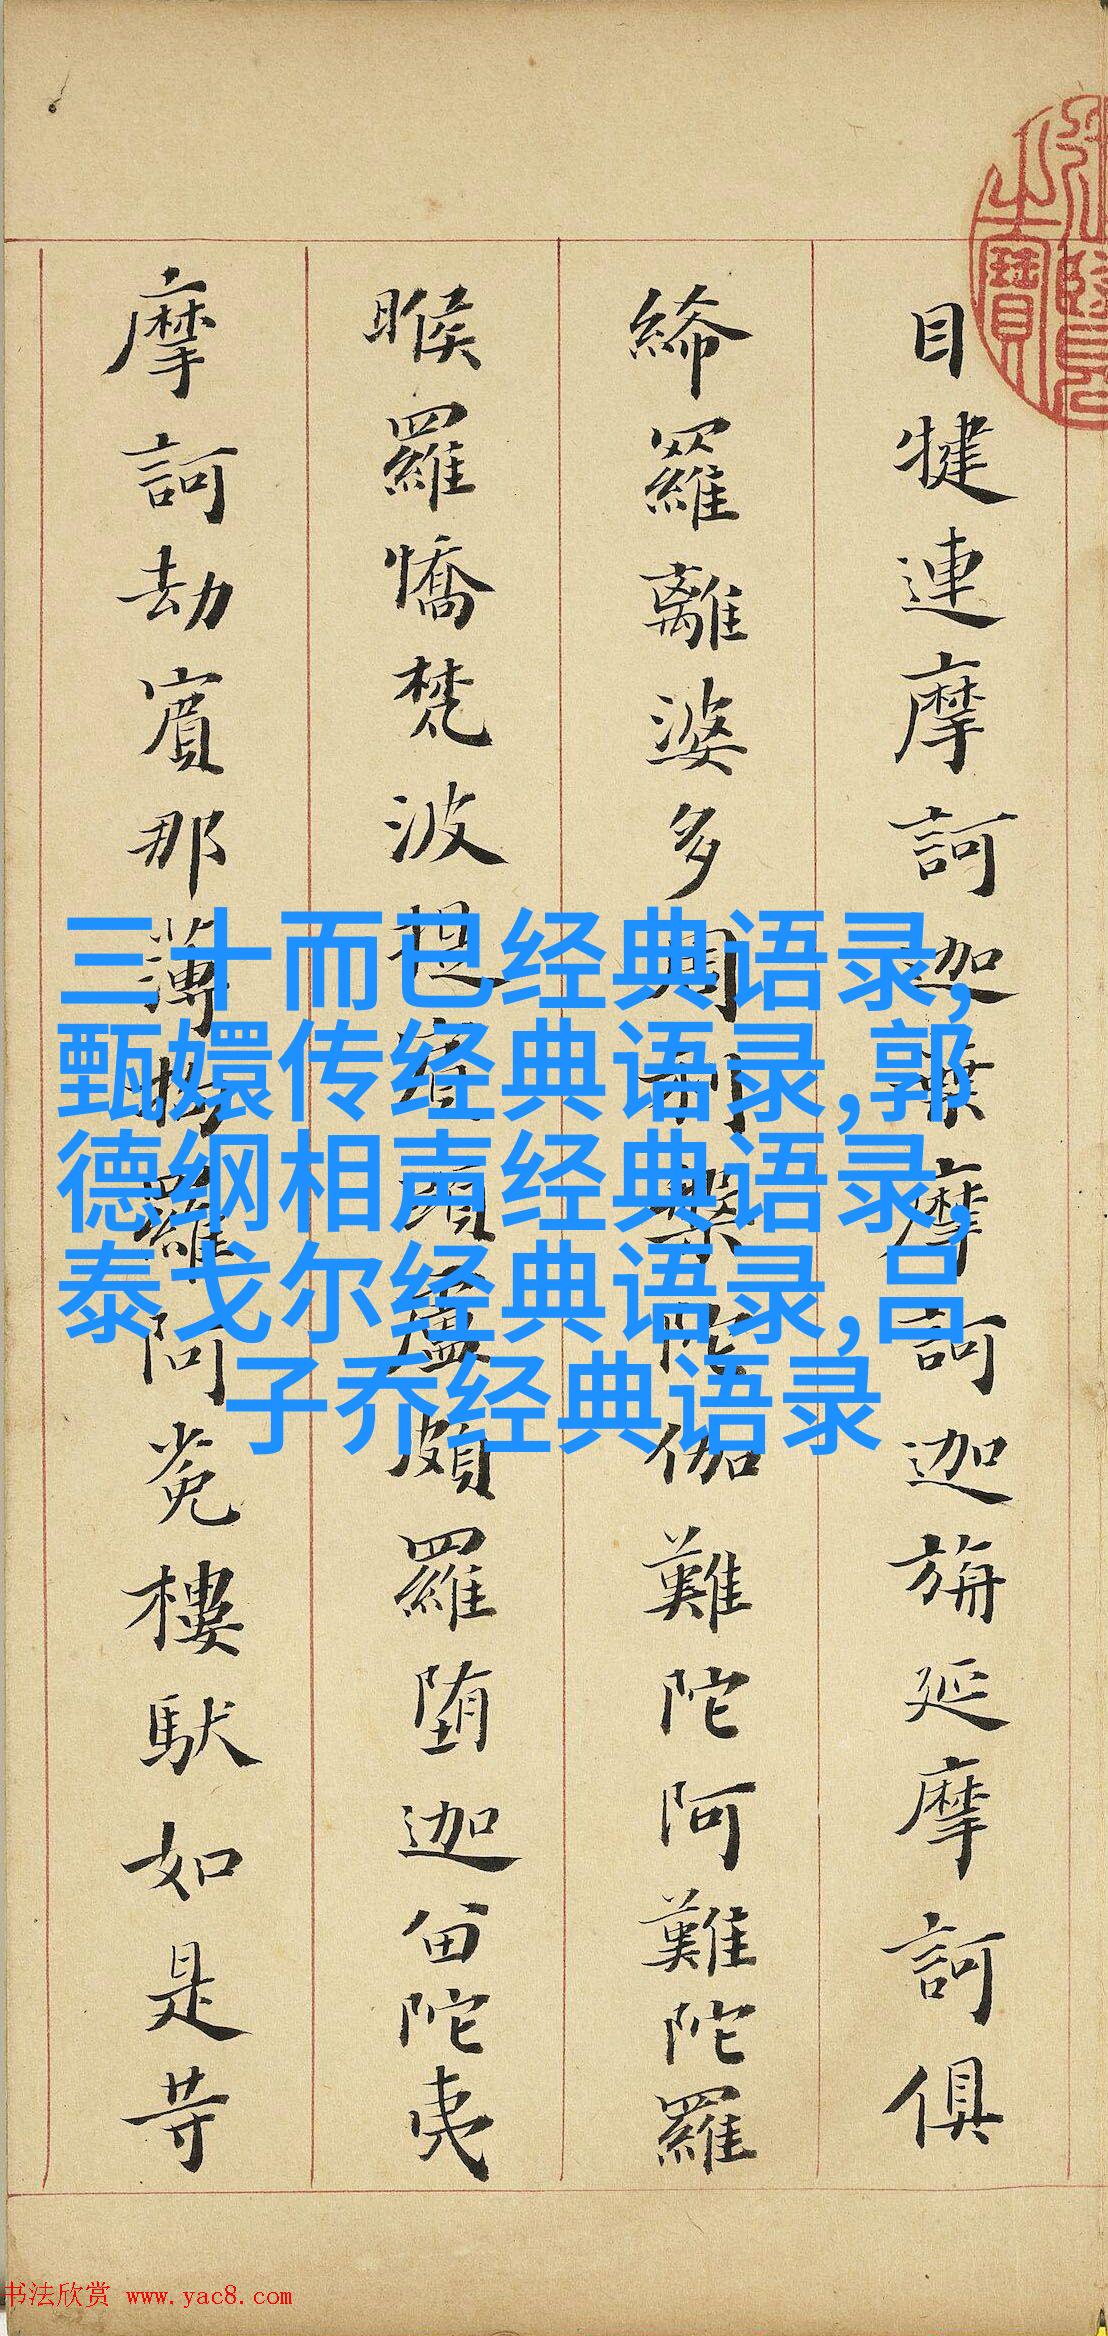 目犍連摩訶迦葉摩訶迦旃延摩訶俱
絺羅離婆多周利槃陀伽難陀阿難陀羅
睺羅憍梵波提賓頭盧頗羅堕迦留陀夷
摩訶劫賓那薄拘羅阿㝹樓馱如是等
之寶
三十而已经典语录,
甄嬛传经典语录,郭
德纲相声经典语录,
泰戈尔经典语录,吕
子乔经典语录
书法欣赏 www.yac8.com